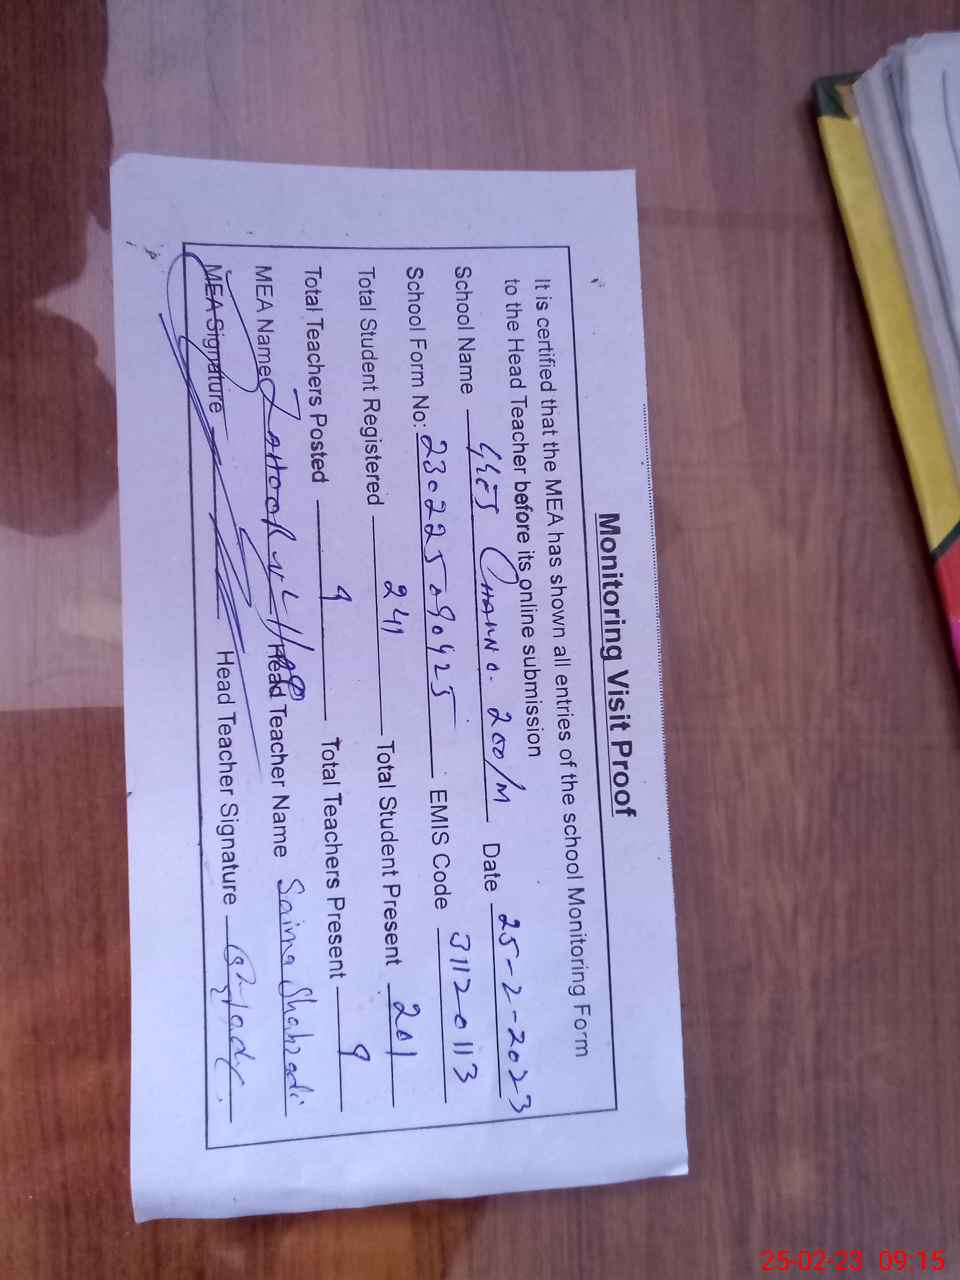 Monitoring Visit Proof
It is certified that the MEA has shown all entries of the school Monitoring Form
to the Head Teacher before its online submission
School Name GGES Chak No. 200/M Date 25-2-2023
School Form No: 230225090425 EMIS Code 31120113
Total Student Registered 241 Total Student Present 201
Total Teachers Posted 9 Total Teachers Present 9
MEA Name Zahoor ul Haq Head Teacher Name Saima Shahzadi
MEA Signature Head Teacher Signature
25-02-23 09:15